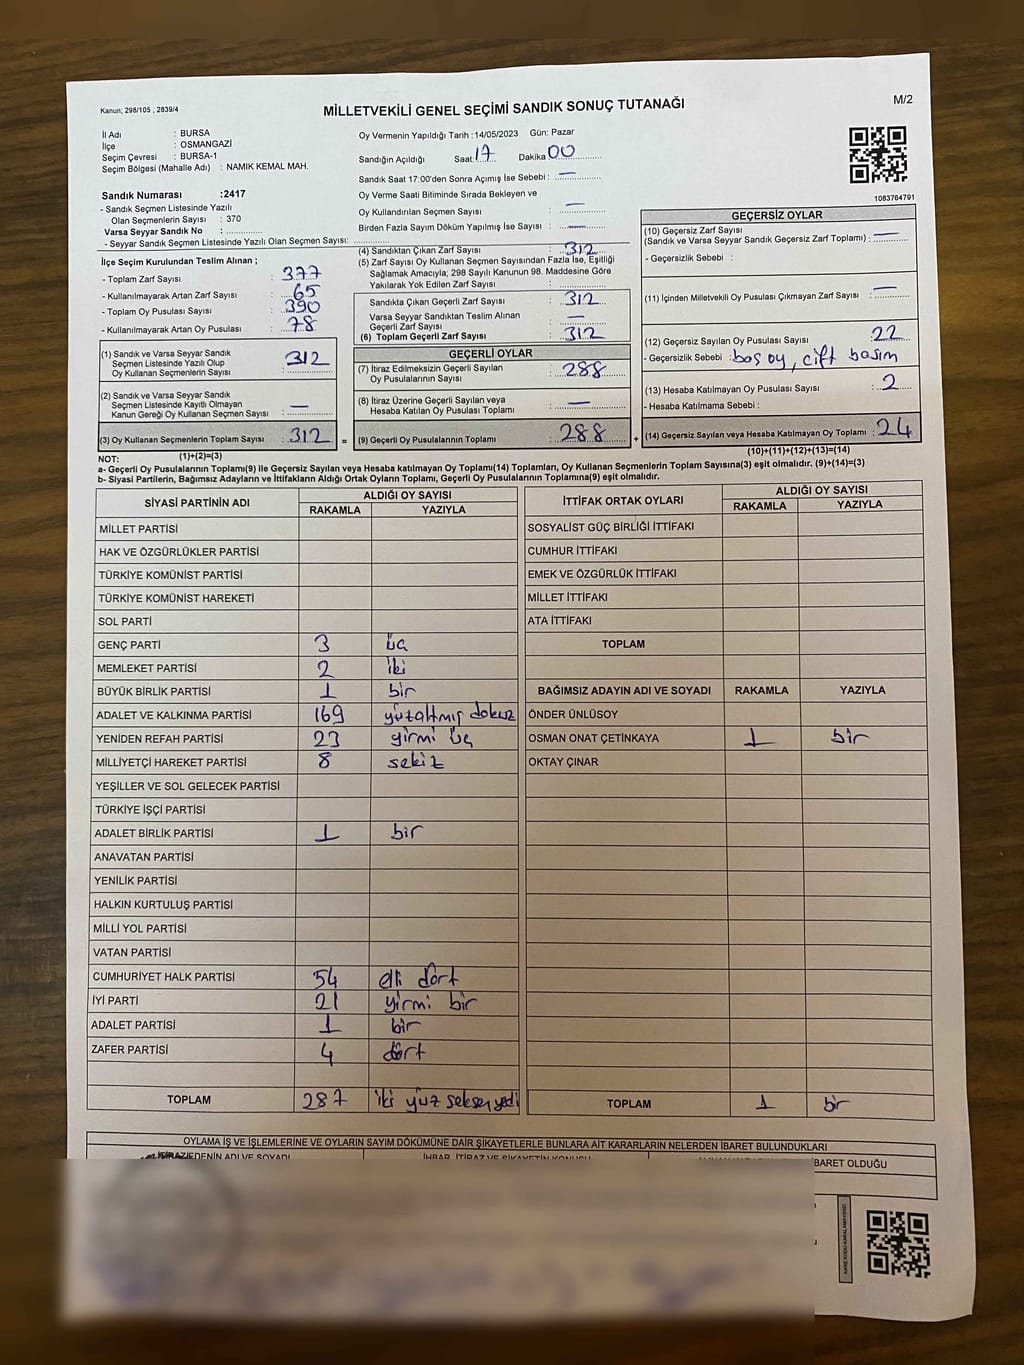 Kanun; 298/105 , 2839/4
MİLLETVEKİLİ GENEL SEÇİMİ SANDIK SONUÇ TUTANAĞI
M/2
İl Adı : BURSA
İlçe : OSMANGAZİ
Seçim Çevresi : BURSA-1
Seçim Bölgesi (Mahalle Adı) : NAMIK KEMAL MAH.
Sandık Numarası :2417
- Sandık Seçmen Listesinde Yazılı
Olan Seçmenlerin Sayısı : 370
Varsa Seyyar Sandık No : ..............
- Seyyar Sandık Seçmen Listesinde Yazılı Olan Seçmen Sayısı: ..............
İlçe Seçim Kurulundan Teslim Alınan ;
- Toplam Zarf Sayısı : 377
- Kullanılmayarak Artan Zarf Sayısı : 65
- Toplam Oy Pusulası Sayısı : 390
- Kullanılmayarak Artan Oy Pusulası : 78
(1) Sandık ve Varsa Seyyar Sandık
Seçmen Listesinde Yazılı Olup
Oy Kullanan Seçmenlerin Sayısı : 312
(2) Sandık ve Varsa Seyyar Sandık
Seçmen Listesinde Kayıtlı Olmayan
Kanun Gereği Oy Kullanan Seçmen Sayısı : —
(3) Oy Kullanan Seçmenlerin Toplam Sayısı : 312 =
(1)+(2)=(3)
Oy Vermenin Yapıldığı Tarih :14/05/2023 Gün: Pazar
Sandığın Açıldığı Saat 17 Dakika 00
Sandık Saat 17:00'den Sonra Açımış İse Sebebi : —
Oy Verme Saati Bitiminde Sırada Bekleyen ve
Oy Kullandırılan Seçmen Sayısı : —
Birden Fazla Sayım Döküm Yapılmış İse Sayısı : —
(4) Sandıktan Çıkan Zarf Sayısı : 312
(5) Zarf Sayısı Oy Kullanan Seçmen Sayısından Fazla İse, Eşitliği
Sağlamak Amacıyla; 298 Sayılı Kanunun 98. Maddesine Göre
Yakılarak Yok Edilen Zarf Sayısı : ..............
Sandıkta Çıkan Geçerli Zarf Sayısı : 312
Varsa Seyyar Sandıktan Teslim Alınan
Geçerli Zarf Sayısı : —
(6) Toplam Geçerli Zarf Sayısı : 312
GEÇERLİ OYLAR
(7) İtiraz Edilmeksizin Geçerli Sayılan
Oy Pusulalarının Sayısı : 288
(8) İtiraz Üzerine Geçerli Sayılan veya
Hesaba Katılan Oy Pusulası Toplamı : —
(9) Geçerli Oy Pusulalarının Toplamı : 288 +
1083764791
GEÇERSİZ OYLAR
(10) Geçersiz Zarf Sayısı
(Sandık ve Varsa Seyyar Sandık Geçersiz Zarf Toplamı) : —
- Geçersizlik Sebebi :
(11) İçinden Milletvekili Oy Pusulası Çıkmayan Zarf Sayısı : —
(12) Geçersiz Sayılan Oy Pusulası Sayısı : 22
- Geçersizlik Sebebi : boş oy, çift basım
(13) Hesaba Katılmayan Oy Pusulası Sayısı : 2
- Hesaba Katılmama Sebebi :
(14) Geçersiz Sayılan veya Hesaba Katılmayan Oy Toplamı : 24
(10)+(11)+(12)+(13)=(14)
NOT:
a- Geçerli Oy Pusulalarının Toplamı(9) ile Geçersiz Sayılan veya Hesaba katılmayan Oy Toplamı(14) Toplamları, Oy Kullanan Seçmenlerin Toplam Sayısına(3) eşit olmalıdır. (9)+(14)=(3)
b- Siyasi Partilerin, Bağımsız Adayların ve İttifakların Aldığı Ortak Oyların Toplamı, Geçerli Oy Pusulalarının Toplamına(9) eşit olmalıdır.
SİYASİ PARTİNİN ADI ALDIĞI OY SAYISI
RAKAMLA YAZIYLA
MİLLET PARTİSİ
HAK VE ÖZGÜRLÜKLER PARTİSİ
TÜRKİYE KOMÜNİST PARTİSİ
TÜRKİYE KOMÜNİST HAREKETİ
SOL PARTİ
GENÇ PARTİ 3 üç
MEMLEKET PARTİSİ 2 iki
BÜYÜK BİRLİK PARTİSİ 1 bir
ADALET VE KALKINMA PARTİSİ 169 yüzaltmış dokuz
YENİDEN REFAH PARTİSİ 23 yirmi üç
MİLLİYETÇİ HAREKET PARTİSİ 8 sekiz
YEŞİLLER VE SOL GELECEK PARTİSİ
TÜRKİYE İŞÇİ PARTİSİ
ADALET BİRLİK PARTİSİ 1 bir
ANAVATAN PARTİSİ
YENİLİK PARTİSİ
HALKIN KURTULUŞ PARTİSİ
MİLLİ YOL PARTİSİ
VATAN PARTİSİ
CUMHURİYET HALK PARTİSİ 54 elli dört
İYİ PARTİ 21 yirmi bir
ADALET PARTİSİ 1 bir
ZAFER PARTİSİ 4 dört
TOPLAM 287 iki yüz seksen yedi
İTTİFAK ORTAK OYLARI ALDIĞI OY SAYISI
RAKAMLA YAZIYLA
SOSYALİST GÜÇ BİRLİĞİ İTTİFAKI
CUMHUR İTTİFAKI
EMEK VE ÖZGÜRLÜK İTTİFAKI
MİLLET İTTİFAKI
ATA İTTİFAKI
TOPLAM
BAĞIMSIZ ADAYIN ADI VE SOYADI RAKAMLA YAZIYLA
ÖNDER ÜNLÜSOY
OSMAN ONAT ÇETİNKAYA 1 bir
OKTAY ÇINAR
TOPLAM 1 bir
OYLAMA İŞ VE İŞLEMLERİNE VE OYLARIN SAYIM DÖKÜMÜNE DAİR ŞİKAYETLERLE BUNLARA AİT KARARLARIN NELERDEN İBARET BULUNDUKLARI
İTİRAZ EDENİN ADI VE SOYADI İHBAR, İTİRAZ VE ŞİKAYETİN KONUSU BARET OLDUĞU